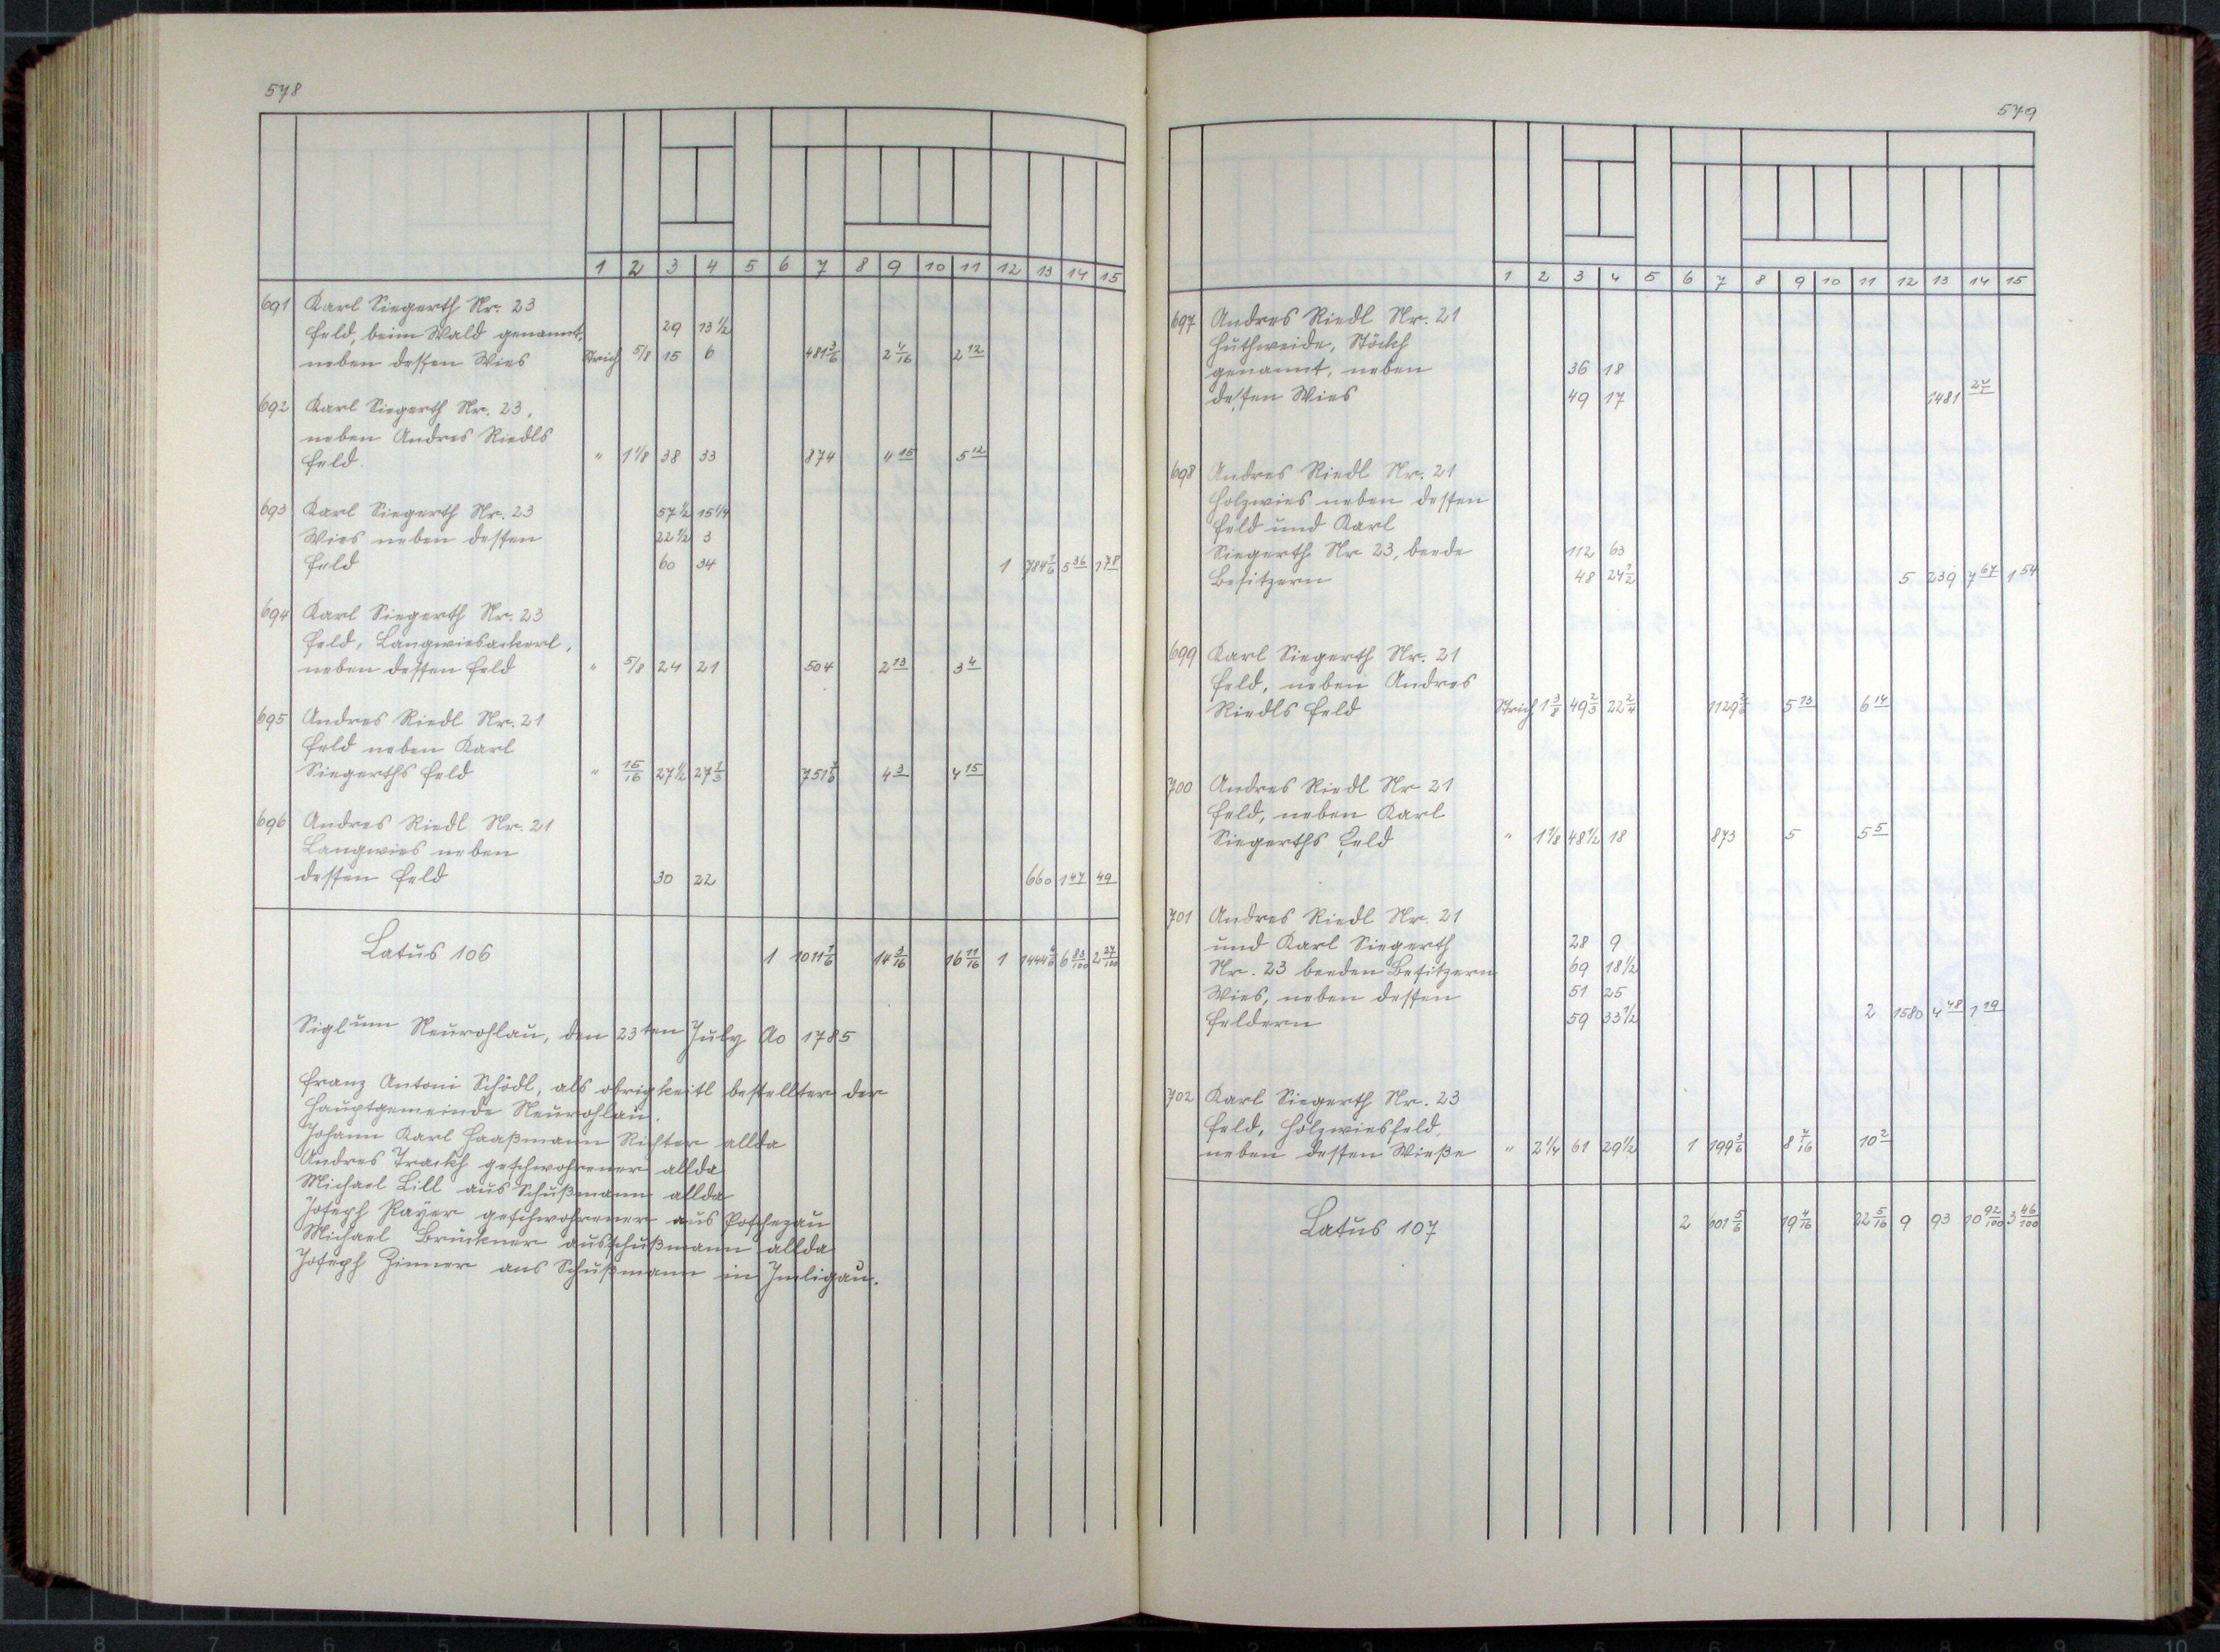 578
1 2 3 4 5 6 7 8 9 10 11 12 13 14 15
691 Karl Siegerth Nr. 23
Feld, beim Wald genannt, 29 13 1/2
neben dessen Wies Strich 5/8 15 6 481 3/6 2 4/16 2 12
692 Karl Siegerth Nr. 23,
neben Andres Riedls
Feld. " 1 1/8 38 33 874 4 15 5 12
693 Karl Siegerth Nr. 23 57 1/2 15 1/4
Wies neben dessen 22 1/2 3
Feld 60 34 1 784 1/6 5 36 1 78
694 Karl Siegerth Nr. 23
Feld, Langwiesackerl,
neben dessen Feld " 5/8 24 21 504 2 13 3 4
695 Andres Riedl Nr. 21
Feld neben Karl
Siegerths Feld " 15/16 27 1/2 27 1/3 751 4/6 4 3 4 15
696 Andres Riedl Nr. 21
Langwies neben
dessen Feld 30 22 660 1 47 49
Latus 106 1 1011 1/6 14 3/16 16 11/16 1 1444 6 83/100 2 27/100
Siglum Neurohlau, den 23ten July Ao 1785
Franz Antoni Schödl, als obrigkeitl bestellter der
Hauptgemeinde Neurohlau.
Johann Karl Haaßmann Richter allda
Andres Trackh geschwohrener allda
Michael Lill aus Schußmann allda
Joseph Rayer geschwohrener aus Poschezau
Michael Brückner ausschußmann allda
Joseph Zinner aus Schußmann in Imligau.
579
1 2 3 4 5 6 7 8 9 10 11 12 13 14 15
697 Andres Riedl Nr. 21
Huthweide, Stöckh
genannt, neben 36 18
dessen Wies 49 17 1481
698 Andres Riedl Nr. 21
Holzwies neben dessen
Feld und Karl
Siegerth Nr 23, beede 112 63
Besitzern 48 24 1/2 5 239 7 67 1 54
699 Karl Siegerth Nr. 21
Feld, neben Andres
Riedls Feld Strich 1 3/8 49 2/3 22 2/4 1129 2/6 5 13 6 14
700 Andres Riedl Nr 21
Feld, neben Karl
Siegerths Feld " 1 1/8 48 1/2 18 873 5 5 5
701 Andres Riedl Nr. 21
und Karl Siegerth 28 9
Nr. 23 beeden Besitzern 69 18 1/2
Wies, neben dessen 51 25
Feldern 59 33 1/2 2 1580 4 48 1 19
702 Karl Siegerth Nr. 23
Feld, Holzwiesfeld,
neben dessen Wieße " 2 1/4 61 29 1/2 1 199 3/6 8 7/16 10 2
Latus 107 2 601 5/6 19 4/16 22 5/16 9 93 10 92/100 3 46/100